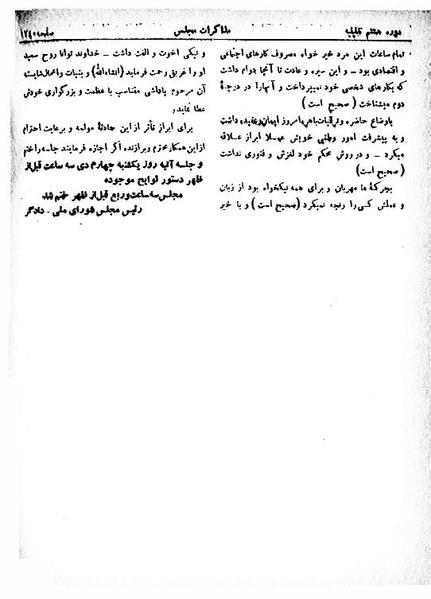 دوره هشتم تقنینیه
مذاکرات مجلس
صفحه ۱۲۴۰
تمام ساعات این مرد خیر خواه مصروف کارهای اجتماعی
و اقتصادی بود - و این سیره و عادت تا آنجا دوام داشت
که بکارهای شخصی خود نمیپرداخت و آنها را در درجهٔ
دوم میشناخت ( صحیح است )
باوضاع حاضره و ترقیات باهر امروز ایمان و عقیده داشت
و به پیشرفت امور وطنی خویش عملا ابراز علاقه
میکرد - و در روش محکم خود لغزش و فتوری نداشت
( صحیح است )
بچرگه ما مهربان و برای همه نیکخواه بود از زبان
و عملش کسی را رنجیده نمیکرد (صحیح است ) و با خیر
و نیکی اخوت و الفت داشت - خداوند توانا روح سعید
او را غریق رحمت فرماید (انشاءالله) و بنیات و اعمال شایسته
آن مرحوم پاداشی متناسب با عظمت و بزرگواری خودش
عطا نماید.
برای ابراز تأثر از این حادثهٔ مولمه و برعایت احترام
از این همکار محترم و برازنده، اگر اجازه فرمایند جلسه را ختم
و جلسه آتیه روز یکشنبه چهارم دی سه ساعت قبل از
ظهر دستور لوایح موجوده
مجلس سه ساعت و ربع قبل از ظهر ختم شد
رئیس مجلس شورای ملی . دادگر